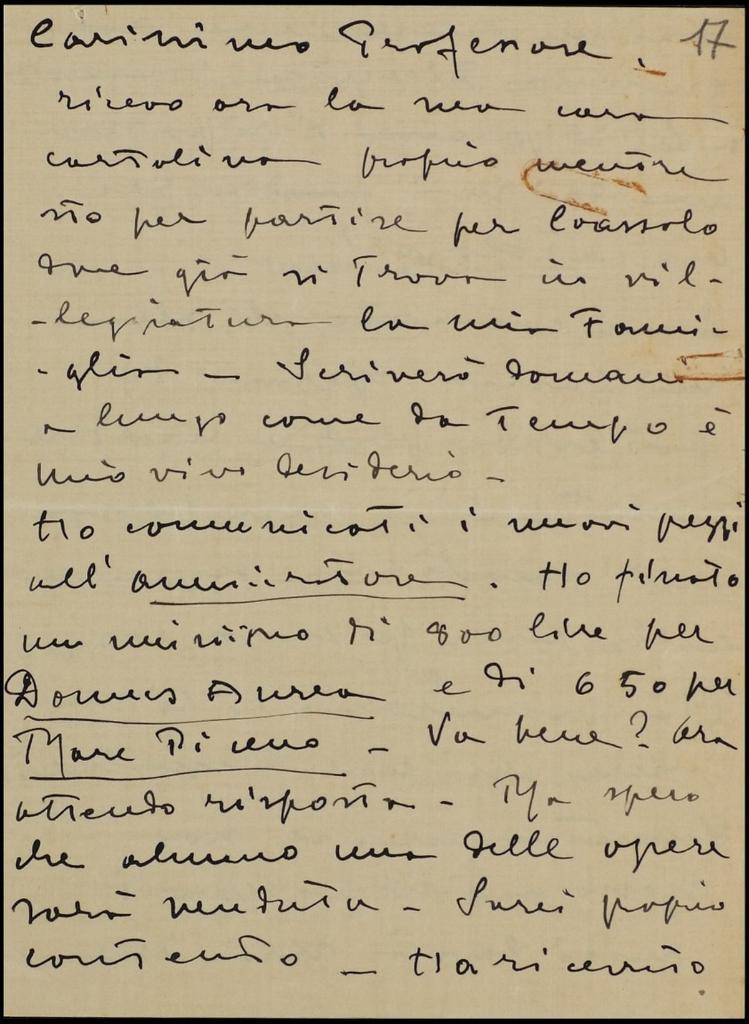 Carissimo Professore, 17
ricevo ora la sua cara
cartolina proprio mentre
sto per partire per Coassolo
dove già si trova in vil-
-legiatura la mia Fami-
-glia - Scriverò domani
a lungo come da tempo è
mio vivo desiderio -
Ho comunicati i nuovi prezzi
all' ammiratore. Ho fissato
un minimo di 800 lire per
Domus Aurea e di 650 per
Mare Piceno - Va bene? Ora
attendo risposta - Ma spero
che almeno una delle opere
sarà venduta - Sarei proprio
contento - Ha ricevuto